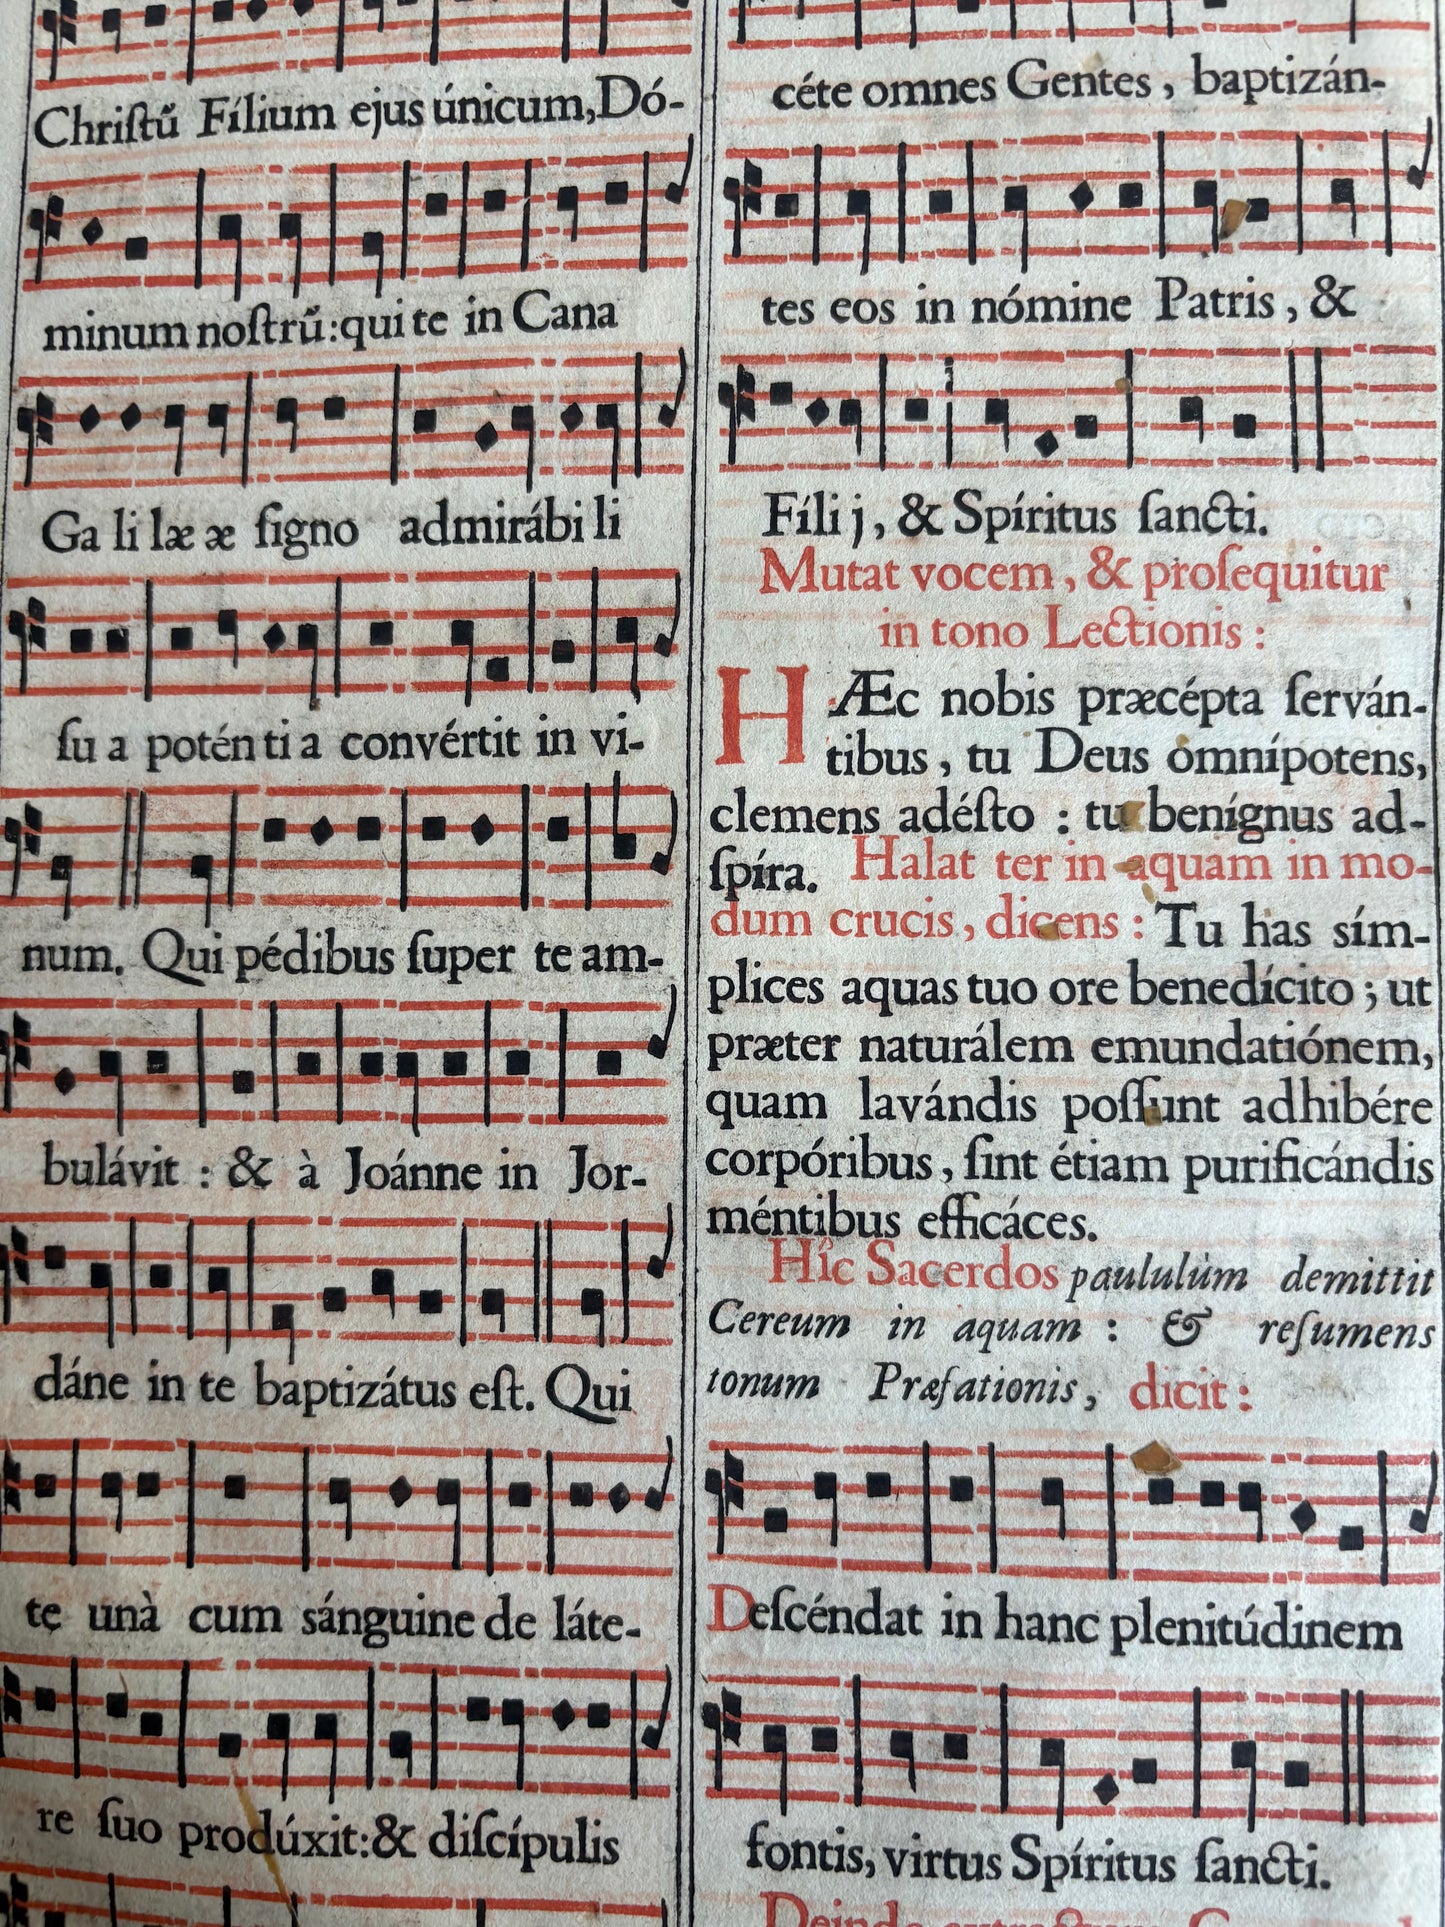 Chriſtũ Fílium ejus únicum, Dó-
minum noſtrũ: qui te in Cana
Ga li læ æ ſigno admirábi li
ſu a potén ti a convértit in vi-
num. Qui pédibus ſuper te am-
bulávit : & à Joánne in Jor-
dáne in te baptizátus eſt. Qui
te unà cum sánguine de láte-
re ſuo prodúxit: & diſcípulis
céte omnes Gentes, baptizán-
tes eos in nómine Patris, &
Fíli j, & Spíritus ſancti.
Mutat vocem, & proſequitur
in tono Lectionis :
HÆc nobis præcépta ſerván-
tibus, tu Deus omnípotens,
clemens adéſto : tu benígnus ad-
ſpíra. Halat ter in aquam in mo-
dum crucis, dicens : Tu has sím-
plices aquas tuo ore benedícito ; ut
præter naturálem emundatiónem,
quam lavándis poſſunt adhibére
corpóribus, ſint étiam purificándis
méntibus efficáces.
Hîc Sacerdos paululùm demittit
Cereum in aquam : & reſumens
tonum Præfationis, dicit :
Deſcéndat in hanc plenitúdinem
fontis, virtus Spíritus ſancti.